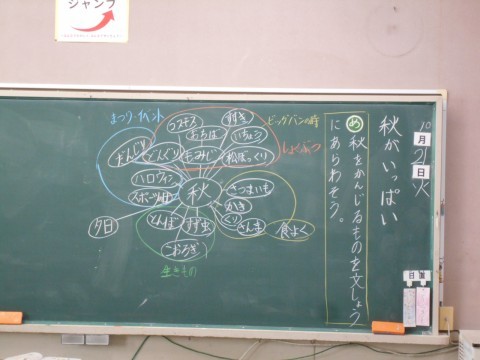 ジャンプ
10月21日火
秋がいっぱい
め 秋をかんじるものを文しょう
にあらわそう。
まつり・イベント
ビッグバンの時
しょくぶつ
コスモス
すすき
おちば
いちょう
だんじり
どんぐり
もみじ
松ぼっくり
ハロウィン
秋
さつまいも
スポーツの日
かき
夕日
とんぼ
すず虫
くり
さんま
食よく
こおろぎ
生きもの
日直